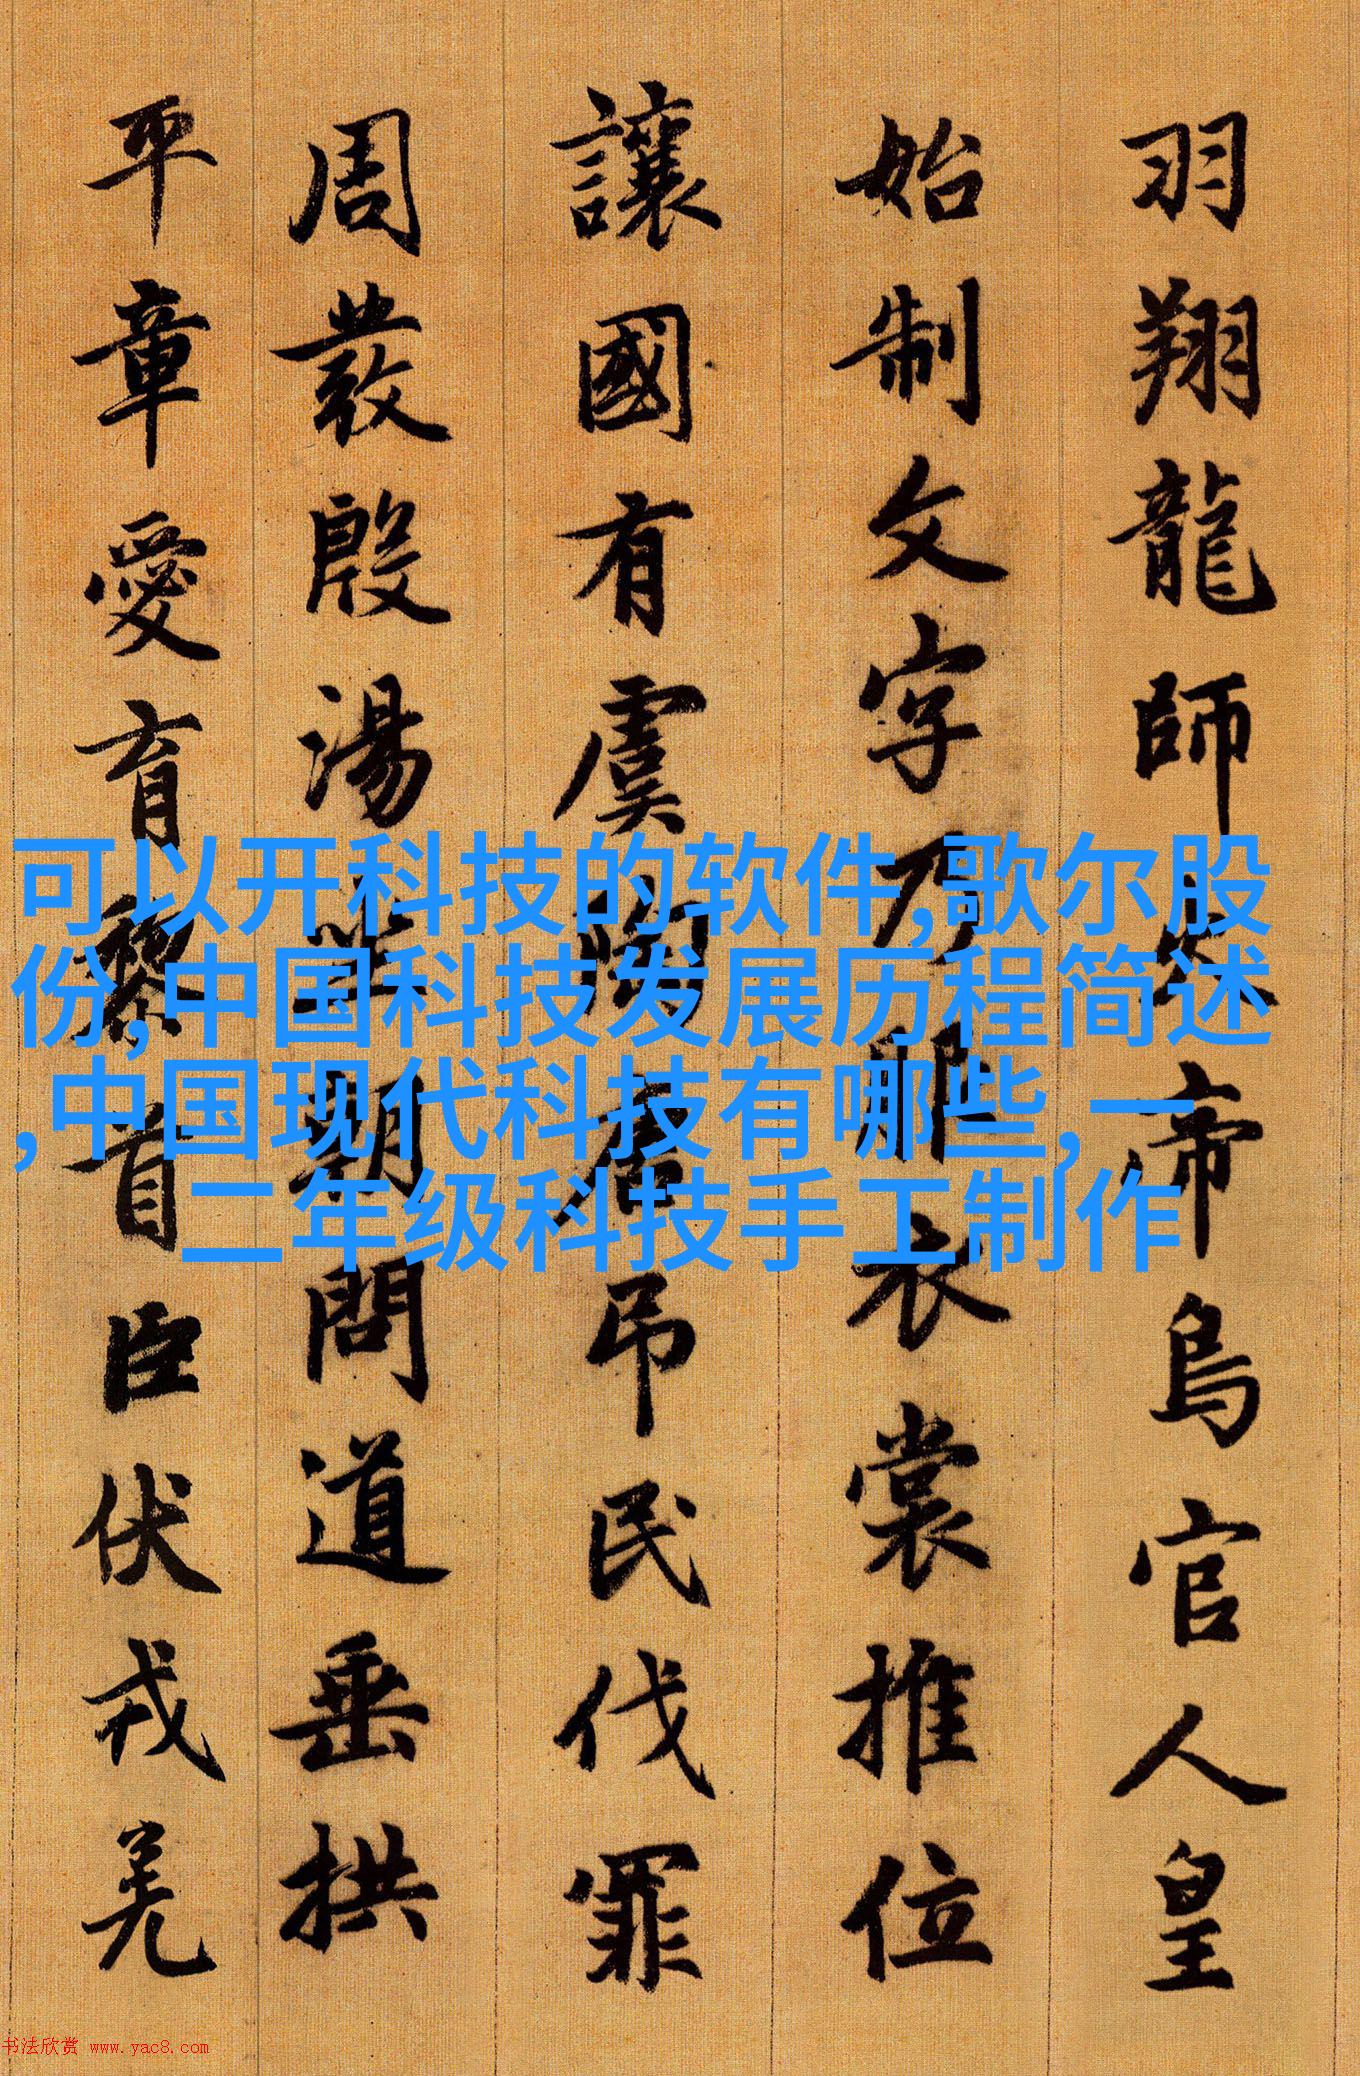 羽翔龍師火帝鳥官人皇
始制文字乃服衣裳推位
讓國有虞陶唐吊民伐罪
周發殷湯坐朝問道垂拱
平章愛育黎首臣伏戎羌
可以开科技的软件,歌尔股
份,中国科技发展历程简述
,中国现代科技有哪些,一
二年级科技手工制作
书法欣赏 www.yac8.com